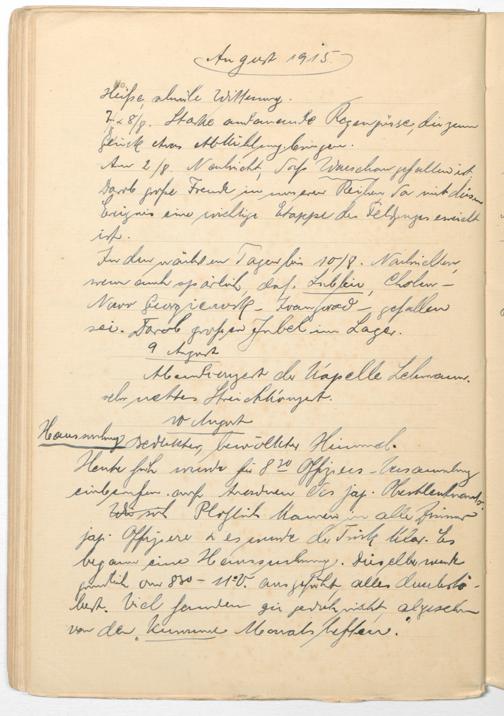 August 1915.
Heiße, schwüle Witterung.
7. & 8/8. Starke andauernde Regengüsse, die zum
Glück etwas Abkühlung bringen.
Am 2/8. Nachricht, daß Warschau gefallen ist.
Darob große Freude in unseren Reihen da mit diesem
Ereignis eine wichtige Etappe des Feldzuges erreicht
ist.
In den nächsten Tagen bis 10/8. Nachrichten,
wenn auch spärlich, daß Lublin, Cholm –
Nowo Georgiewsk – Iwangorod – gefallen
sei. Darob großer Jubel im Lager.
9 August
Abendkonzert der Kapelle Lehmann.
sehr nettes Streichkonzert.
10 August
Haussuchung Bedeckter, bewölkter Himmel.
Heute früh wurde für 8 30 Offiziers-Versammlung
einberufen auf des jap. Oberstleutnants.
Plötzlich kamen in alle Zimmer
jap. Offiziere & es wurde die Türk klar. Es
begann eine Haussuchung. Dieselbe wurde
gründlich von 8 30 – 11 V. ausgeführt alles durchstö-
bert. Viel fanden sie jedoch nicht, abgesehen
von den "Kumume Monatsheften."